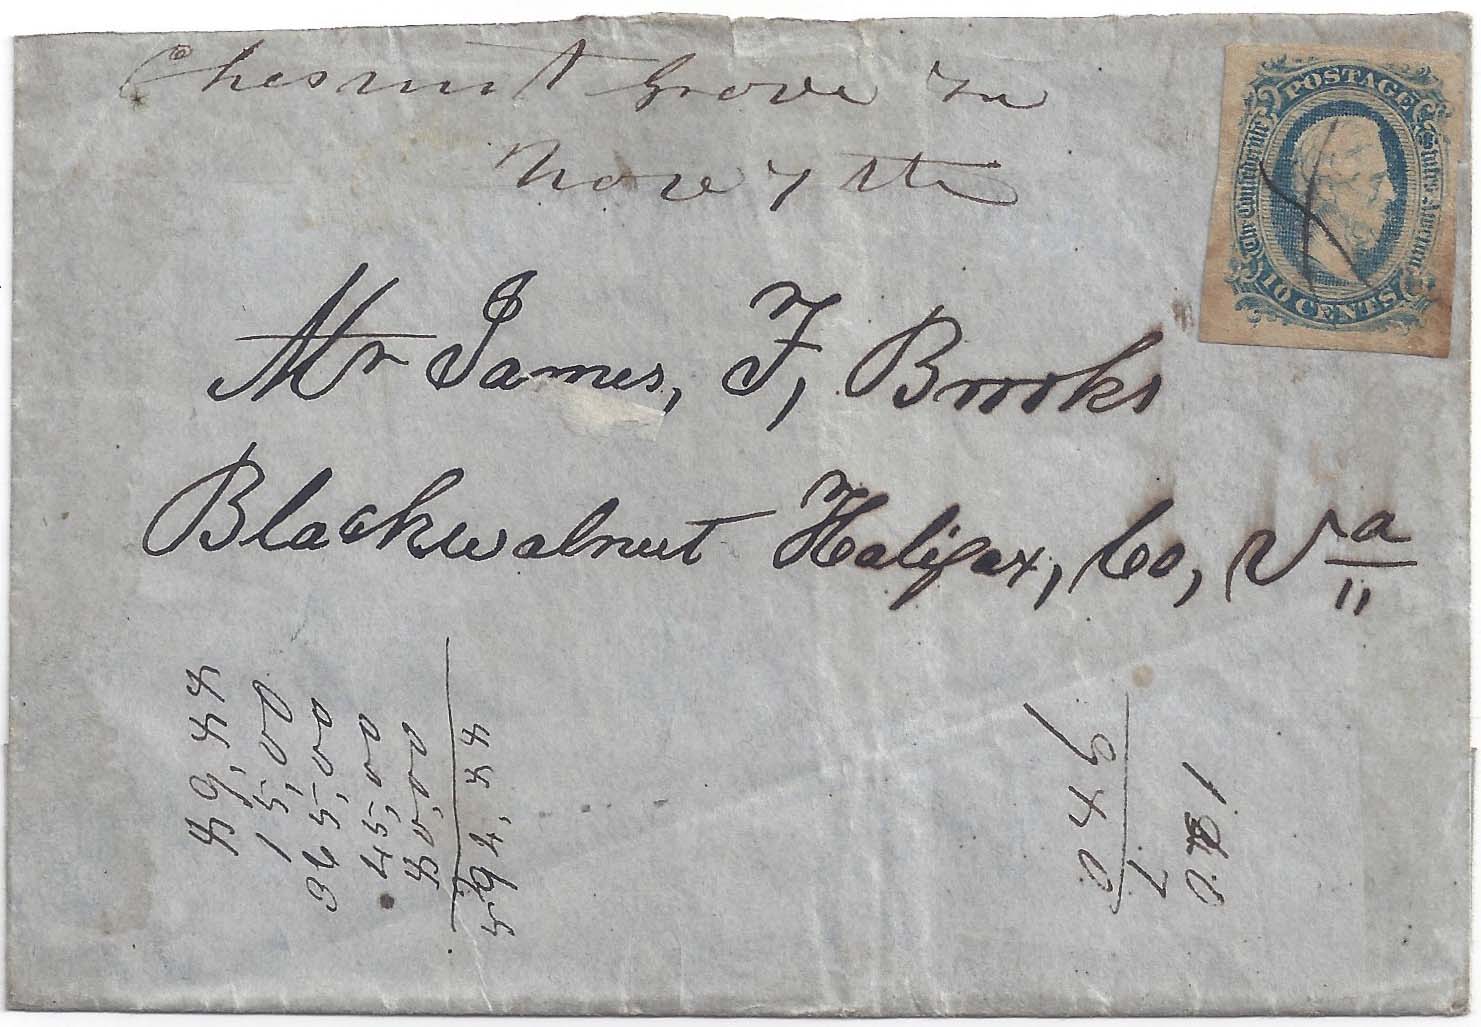 Chesnut Grove Va
Nove 7th
POSTAGE
The Confederate States America
10 CENTS
Mr James, F, Brooks
Blackwalnut Halifax, Co, Va
89,88
15,00
365,00
45,00
80,00
594,88
120
7
840